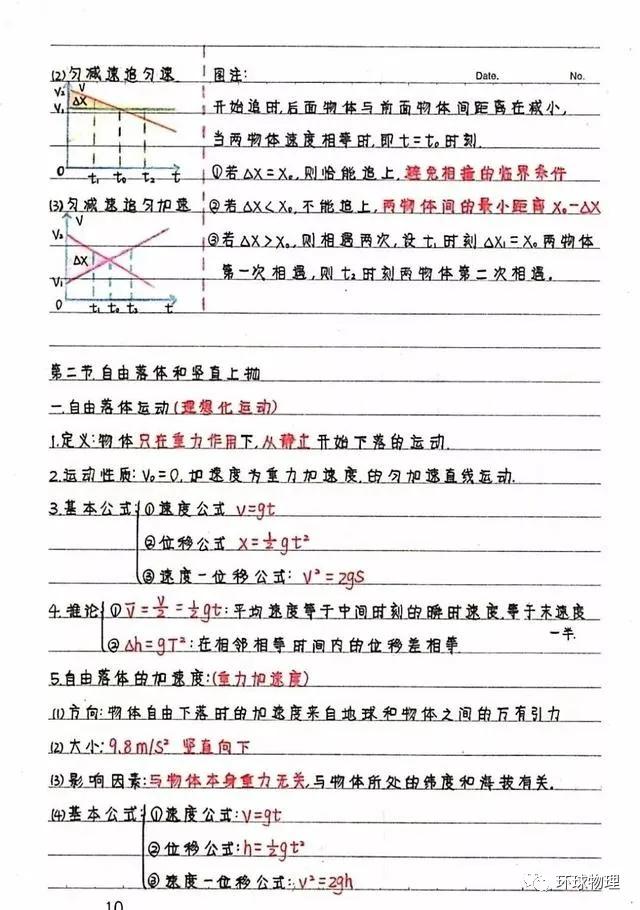 (2)匀减速追匀速
图注:
Date.
No.
V
V₂
ΔX
V₁
0
t₁ t₀ t₂ t
开始追时,后面物体与前面物体间距离在减小,
当两物体速度相等时,即t=t₀时刻.
①若ΔX=X₀,则恰能追上,避免相撞的临界条件
(3)匀减速追匀加速
②若ΔX<X₀,不能追上,两物体间的最小距离X₀-ΔX
V
V₂
ΔX
V₁
0
t₁ t₀ t₂ t
③若ΔX>X₀,则相遇两次,设t₁时刻ΔX₁=X₀两物体
第一次相遇,则t₂时刻两物体第二次相遇.
第二节.自由落体和竖直上抛
一.自由落体运动(理想化运动)
1.定义:物体只在重力作用下,从静止开始下落的运动.
2.运动性质:V₀=0,加速度为重力加速度.的匀加速直线运动.
3.基本公式:①速度公式 v=gt
②位移公式 x=½gt²
③速度—位移公式:v²=2gS
4.推论①v̄=v/2=½gt:平均速度等于中间时刻的瞬时速度.等于末速度
一半.
②Δh=gT²:在相邻相等时间内的位移差相等
5.自由落体的加速度:(重力加速度)
(1)方向:物体自由下落时的加速度来自地球和物体之间的万有引力
(2)大小:9.8m/s² 竖直向下
(3)影响因素:与物体本身重力无关,与物体所处的纬度和海拔有关.
(4)基本公式:①速度公式:v=gt
②位移公式:h=½gt²
③速度—位移公式:v²=2gh
环球物理
10